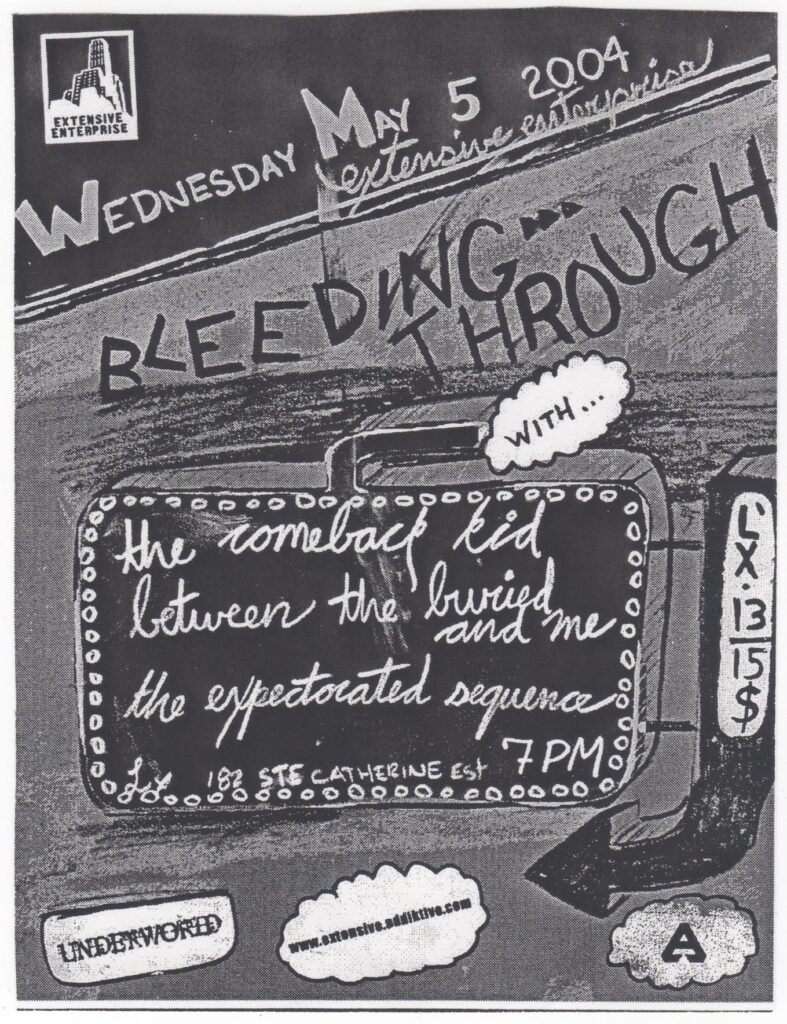 EXTENSIVE
ENTERPRISE
WEDNESDAY MAY 5 2004
extensive enterprise
BLEEDING
THROUGH
WITH...
the comeback kid
between the buried
and me
the expectorated sequence
7PM
182 STE CATHERINE EST
L'
X.
13
15
$
UNDERWORLD
www.extensive.addiktive.com
A